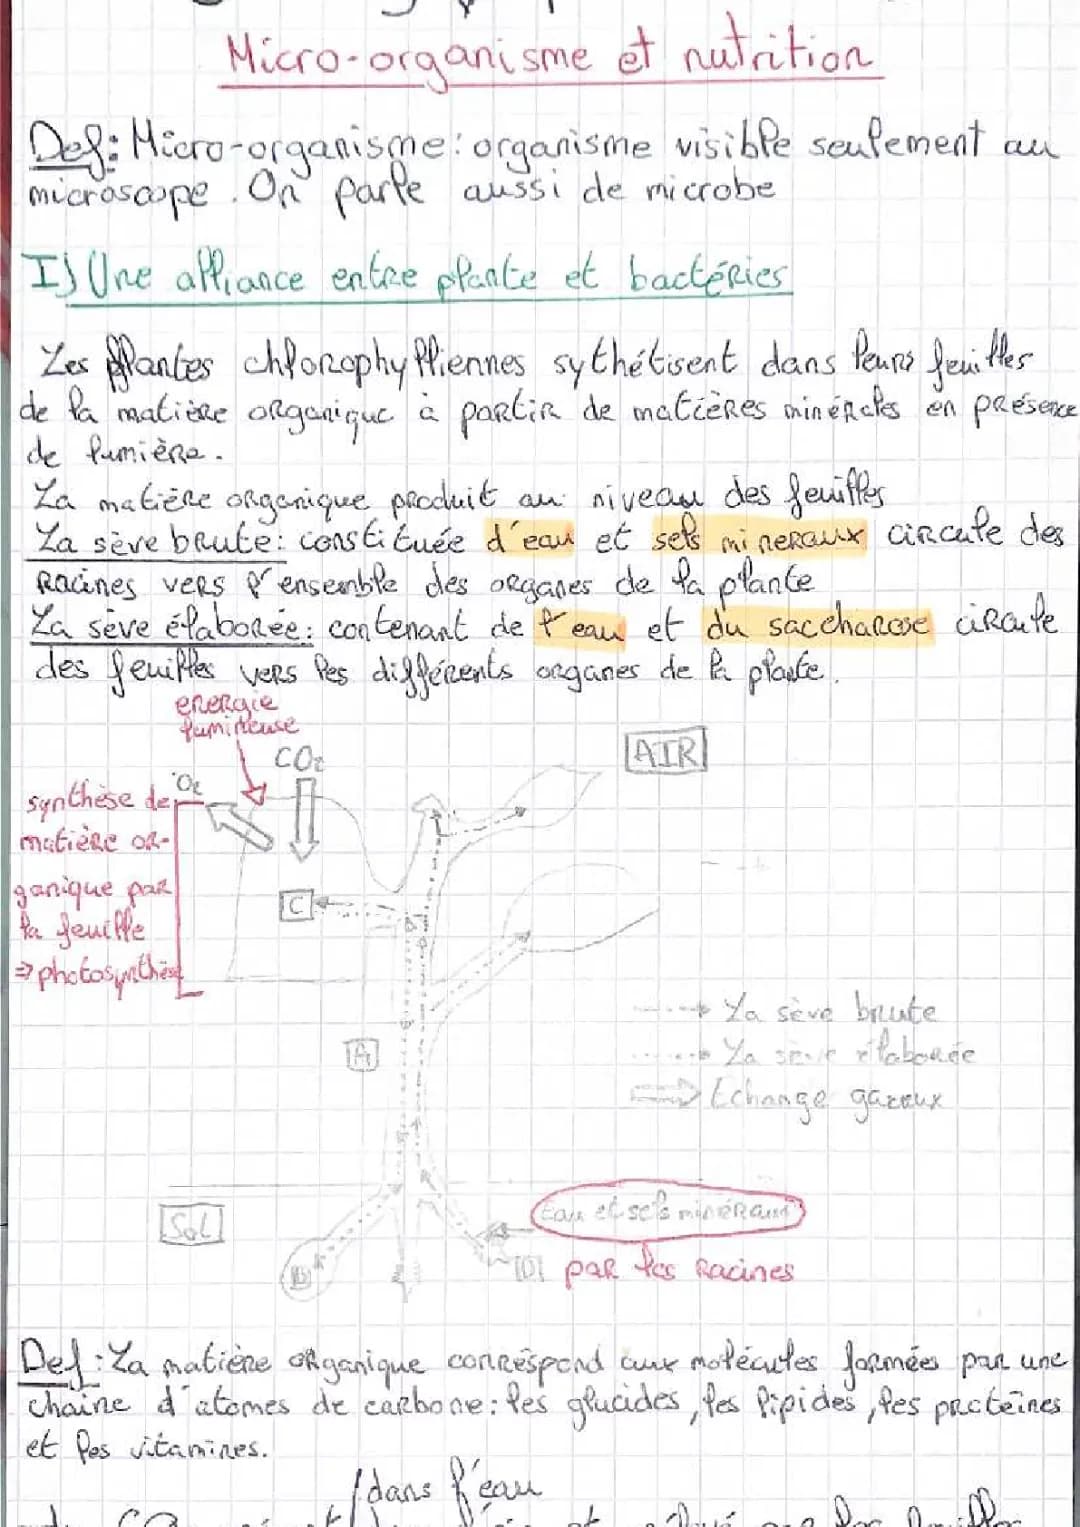 Micro-organisme et nutrition
Def: Micro-organisme: organisme visible seulement au
microscope. On parle aussi de microbe
I) Une alliance entre plante et bactéries
Les plantes chlorophylliennes sythétisent dans leurs feuilles
de la matière organique à partir de matières minérales en présence
de lumière.
La matière organique produit au niveau des feuilles
La sève brute: constituée d'eau et sels mineraux circule des
racines vers l'ensemble des organes de la plante
La sève élaborée: contenant de l'eau et du saccharose circule
des feuilles vers les différents organes de la plante.
energie
lumineuse
CO2
AIR
O2
synthèse de
matière or-
ganique par
la feuille
⇒ photosynthèse
C
La sève brute
La sève élaborée
A
Echange gazeux
Sol
Eau et sels minéraux
B
D
par les racines
Def: La matière organique correspond aux molécules formées par une
chaîne d'atomes de carbone: les glucides, les lipides, les protéines
et les vitamines.
/dans l'eau